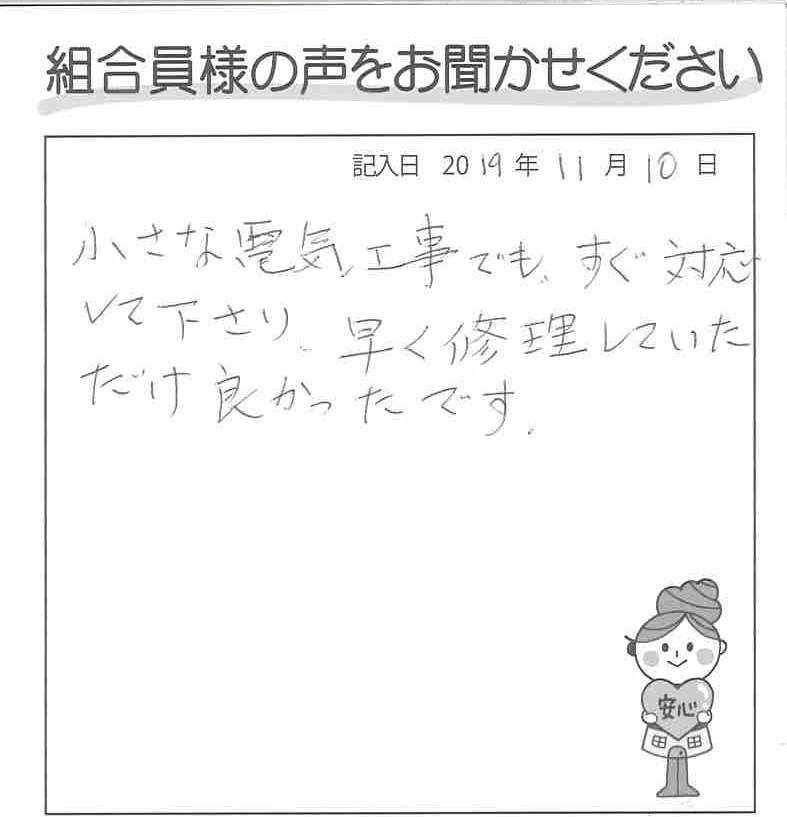 組合員様の声をお聞かせください
記入日 2019年 11月 10日
小さな電気工事でも、すぐ対応
して下さり、早く修理していた
だけ良かったです。
安心